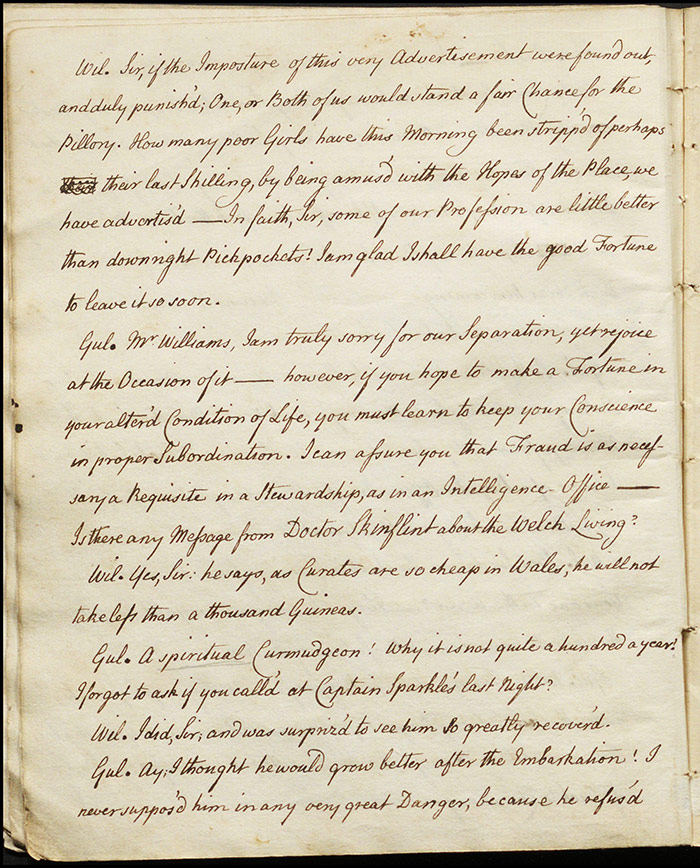 Wil. Sir, if the Imposture of this very Advertisement were found out,
and duly punish'd; One, or Both of us would stand a fair Chance for the
Pillory. How many poor Girls have this Morning been stripp'd of perhaps
their last Shilling, by being amus'd with the Hopes of the Place, we
have advertis'd — In faith, Sir, some of our Profession are little better
than downright Pickpockets! I am glad I shall have the good Fortune
to leave it so soon.
Gul. Mr Williams, I am truly sorry for our Separation, yet rejoice
at the Occasion of it — however, if you hope to make a Fortune in
your alter'd Condition of Life, you must learn to keep your Conscience
in proper Subordination. I can assure you that Fraud is as neces-
sary a Requisite in a Stewardship, as in an Intelligence-Office —
Is there any Message from Doctor Skinflint about the Welch Living?
Wil. Yes, Sir: he says, as Curates are so cheap in Wales, he will not
take less than a thousand Guineas.
Gul. A spiritual Curmudgeon! Why it is not quite a hundred a year!
I forgot to ask if you call'd at Captain Sparkle's last Night?
Wil. I did, Sir; and was surpriz'd to see him so greatly recover'd.
Gul. Ay; I thought he would grow better after the Embarkation! I
never suppos'd him in any very great Danger, because he refus'd